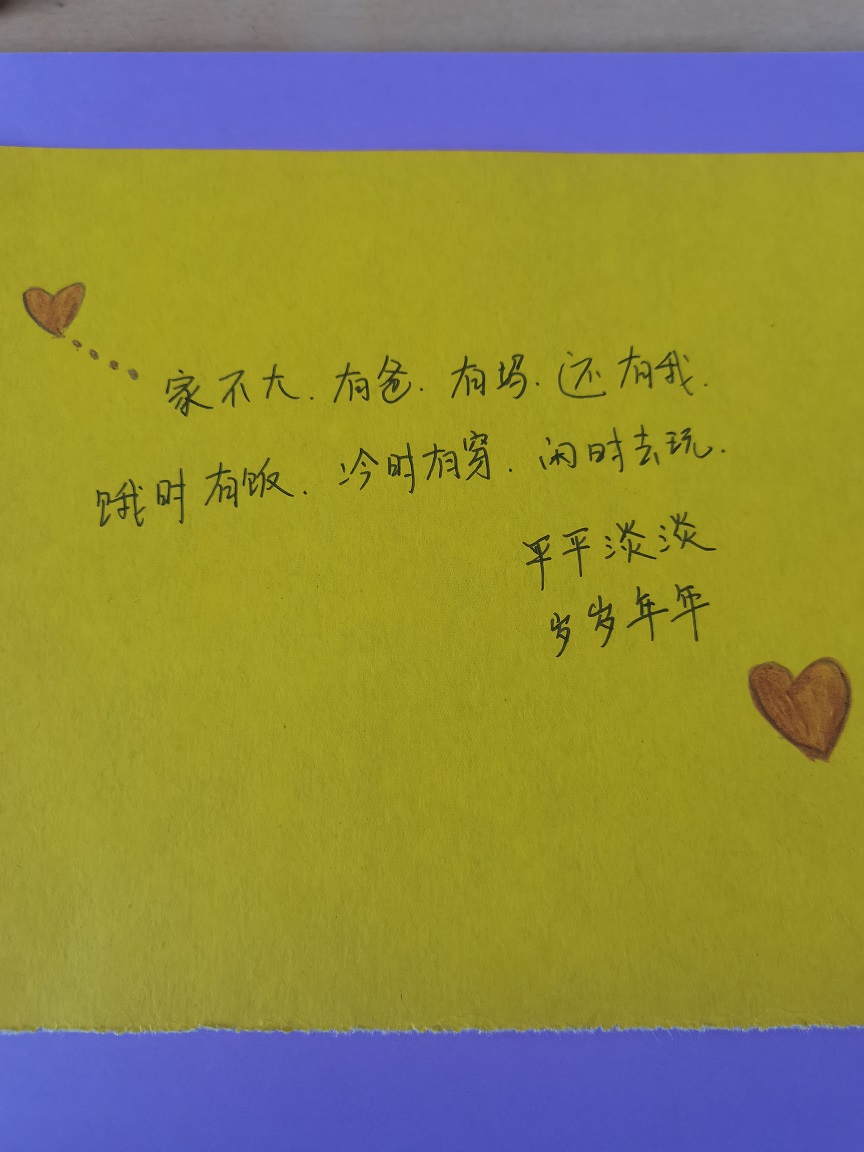 家不大.有爸.有妈.还有我.
饿时有饭.冷时有穿.闲时去玩.
平平淡淡
岁岁年年